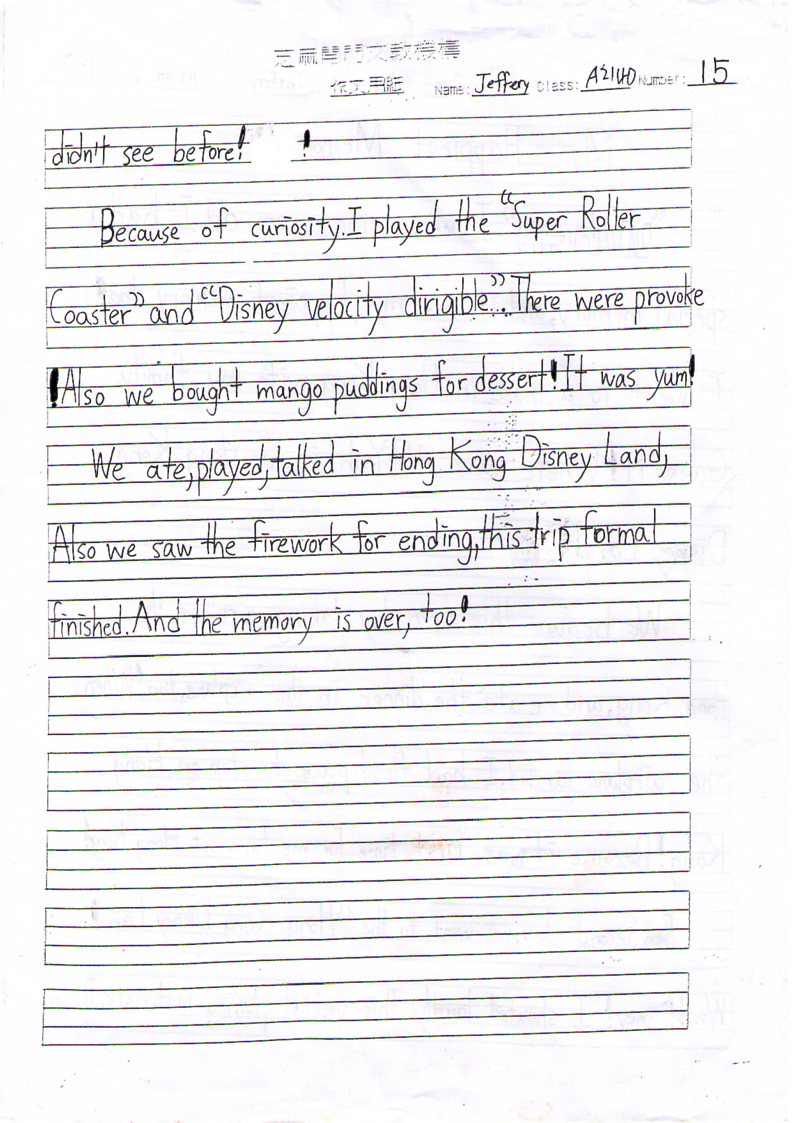 芝麻開門文教機構
作文用紙 Name: Jeffery Class: A2140 Number: 15
didn't see before! !
Because of curiosity. I played the "Super Roller
Coaster" and "Disney velocity dirigible"... There were provoke
! Also we bought mango puddings for dessert! It was yum!
We ate, played, talked in Hong Kong Disney Land,
Also we saw the firework for ending, this trip formal
finished. And the memory is over, too!